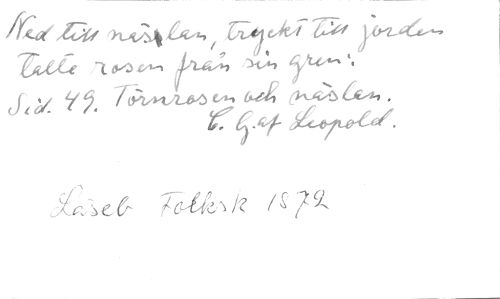 Ned till näslan, tryckt till jorden
talte rosen från sin gren:
Sid. 49. Törnrosen och näslan.
C. G. af Leopold.
Läseb Folksk 1872